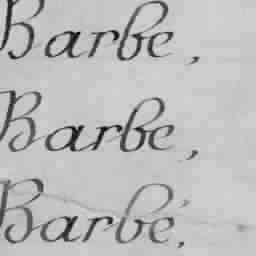 Barbe,
Barbe,
Barbé,